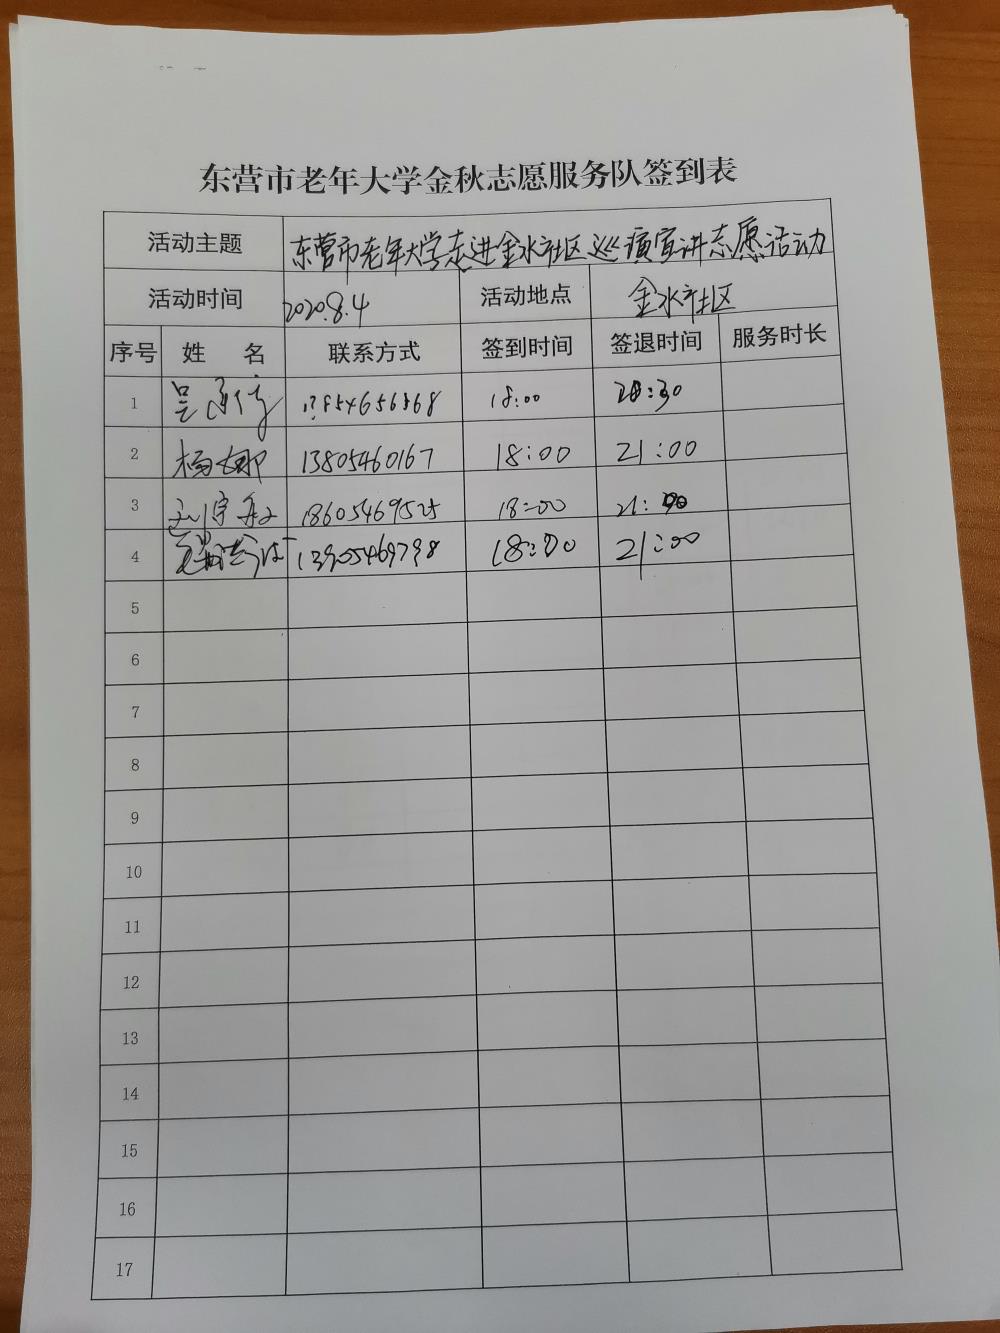 东营市老年大学金秋志愿服务队签到表
活动主题 东营市老年大学走进金水社区巡演宣讲志愿活动
活动时间 2020.8.4 活动地点 金水社区
序号 姓 名 联系方式 签到时间 签退时间 服务时长
1 吴 18:00
2 杨娜 13805460167 18:00 21:00
3 18605469525 18:00 21:00
4 13905469798 18:00 21:00
5
6
7
8
9
10
11
12
13
14
15
16
17